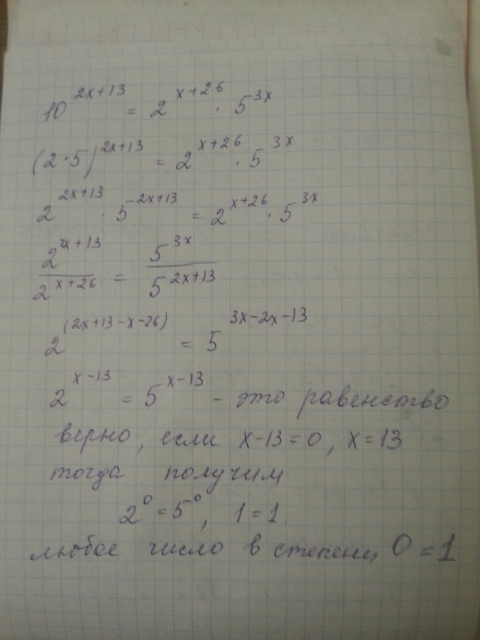 10^(2x+13) = 2^(x+26) · 5^(3x)
(2·5)^(2x+13) = 2^(x+26) · 5^(3x)
2^(2x+13) · 5^(2x+13) = 2^(x+26) · 5^(3x)
2^(2x+13) / 2^(x+26) = 5^(3x) / 5^(2x+13)
2^(2x+13-x-26) = 5^(3x-2x-13)
2^(x-13) = 5^(x-13) - это равенство
верно, если x-13=0, x=13
тогда получим
2^0 = 5^0, 1=1.
любое число в степени 0 = 1